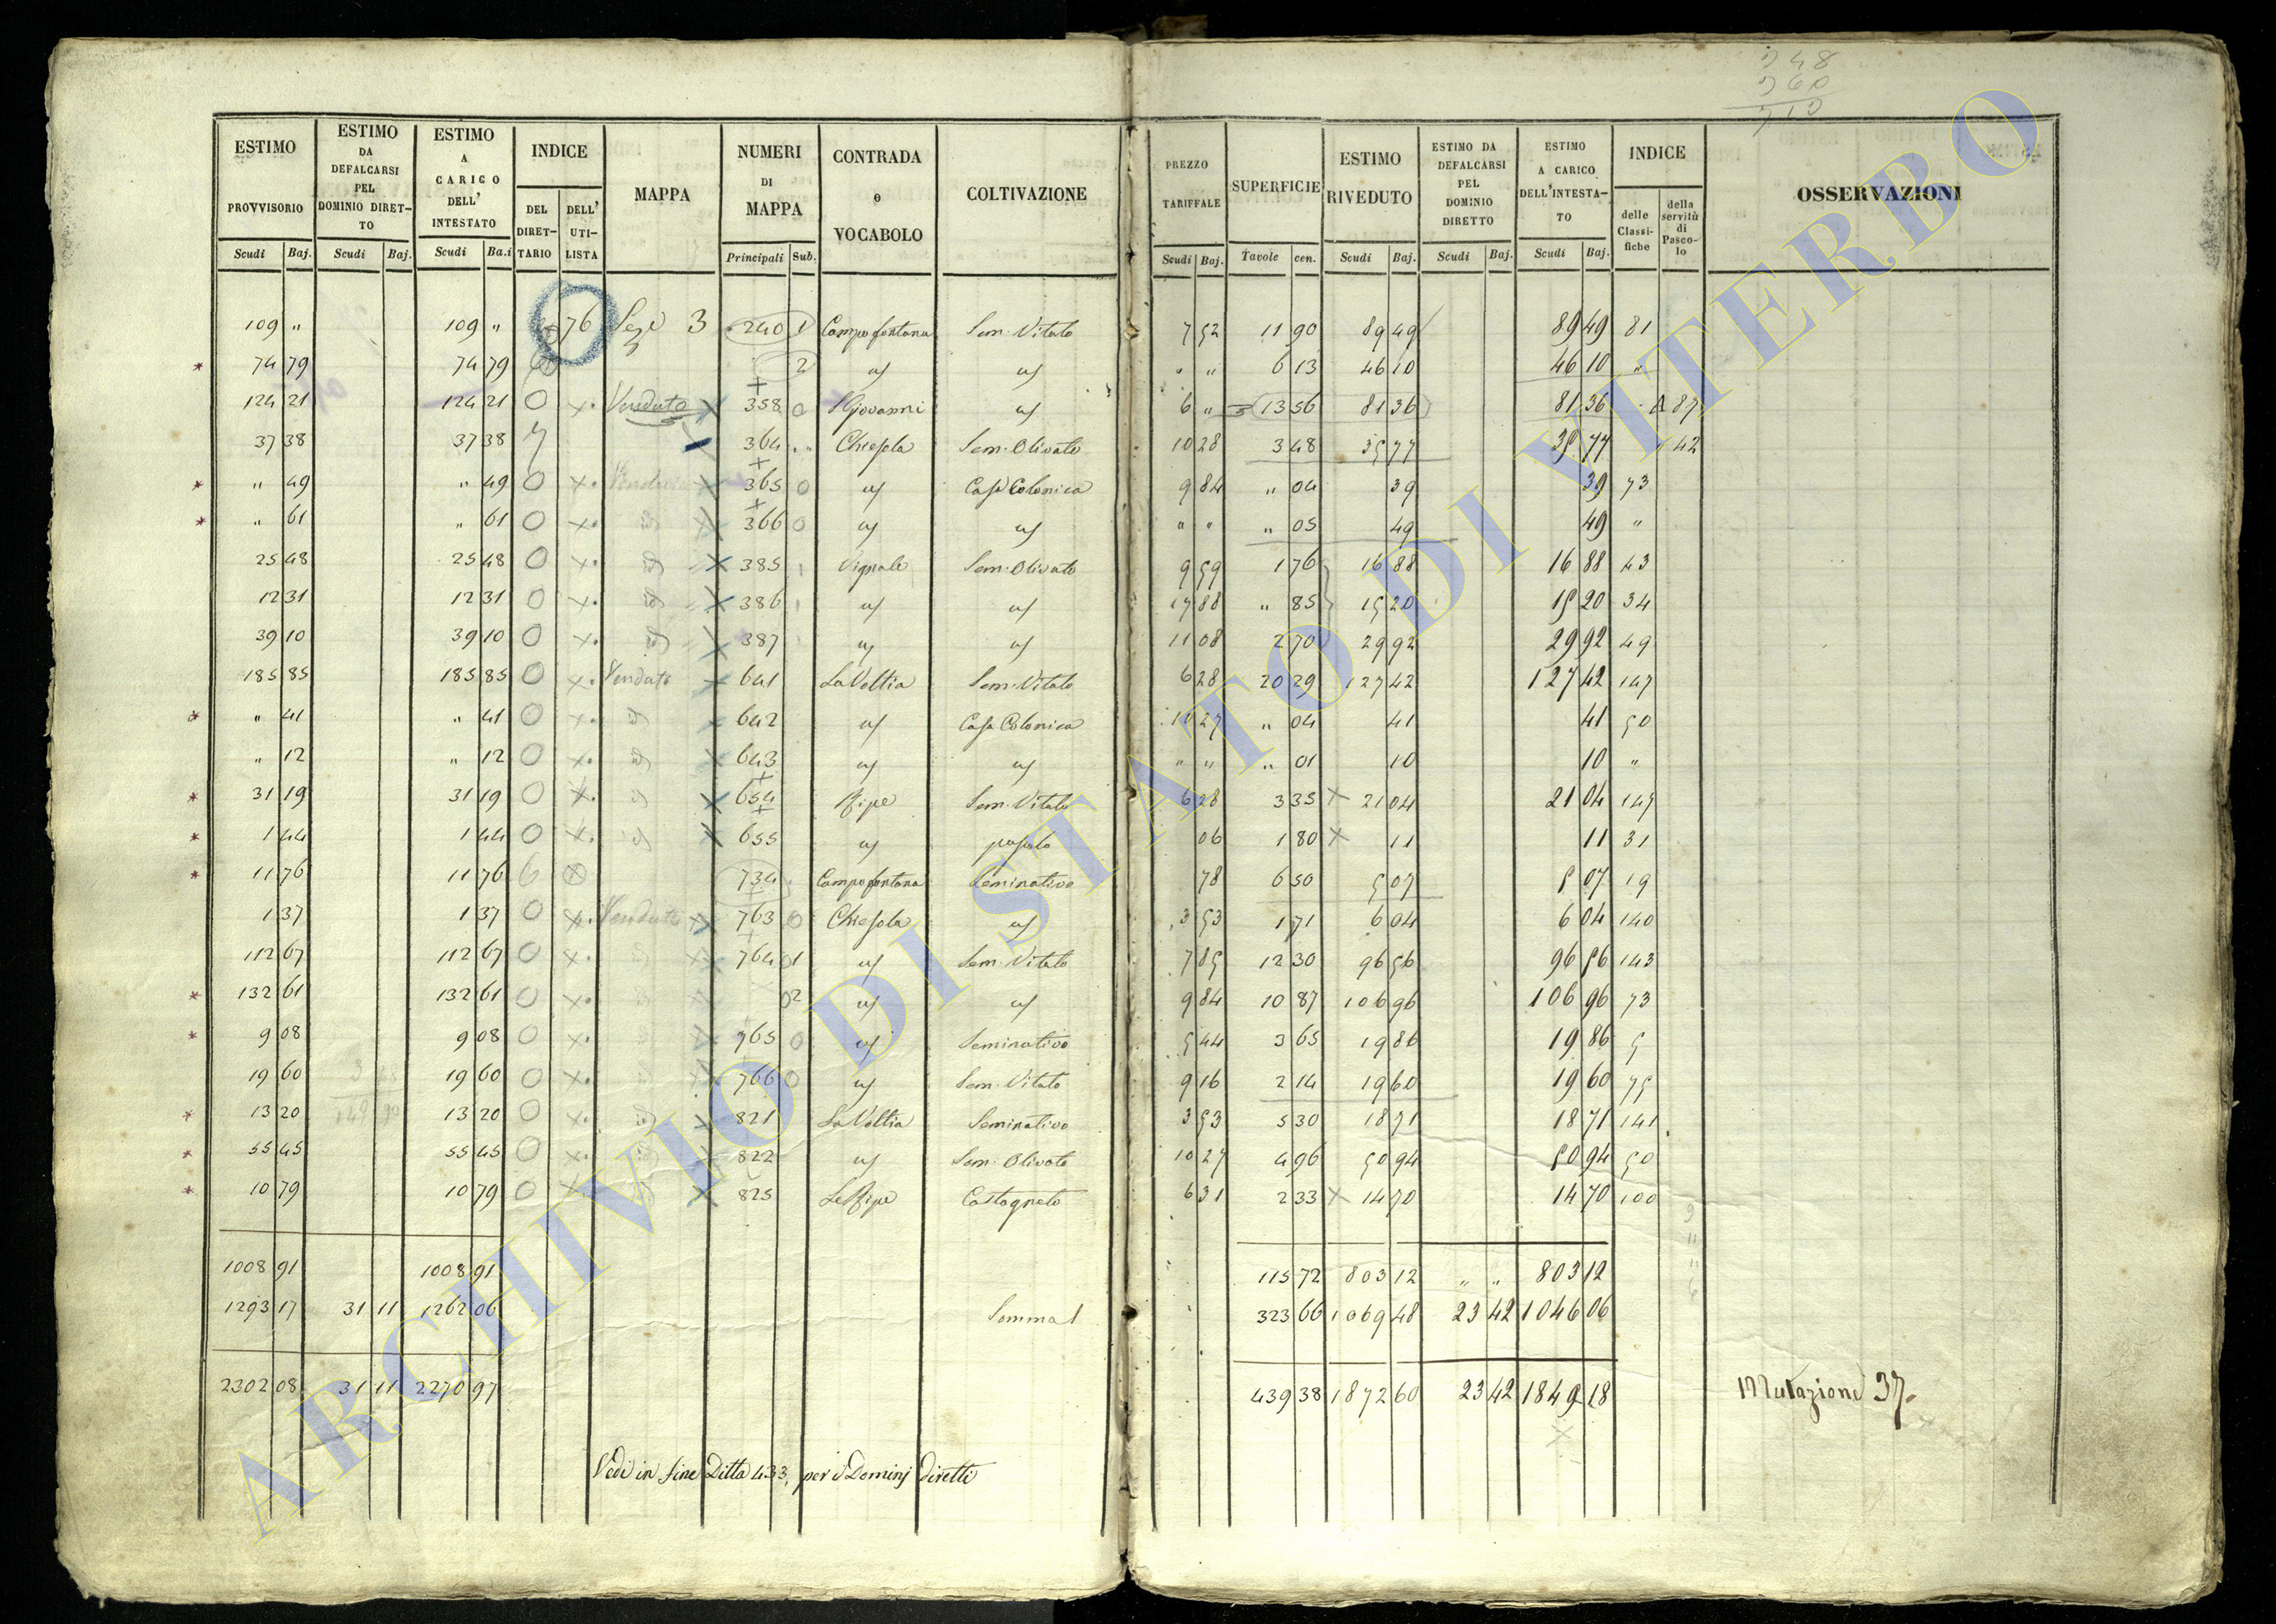 348
360
ESTIMO PROVVISORIO | ESTIMO DA DEFALCARSI PEL DOMINIO DIRET-TO | ESTIMO A CARICO DELL' INTESTATO | INDICE | MAPPA | NUMERI DI MAPPA | CONTRADA o VOCABOLO | COLTIVAZIONE | PREZZO TARIFFALE | SUPERFICIE | ESTIMO RIVEDUTO | ESTIMO DA DEFALCARSI PEL DOMINIO DIRETTO | ESTIMO A CARICO DELL'INTESTA-TO | INDICE | OSSERVAZIONI
Scudi | Baj. | Scudi | Baj. | Scudi | Ba.i | DEL DIRET-TARIO | DELL' UTI-LISTA | Principali | Sub. | Scudi | Baj. | Tavole | cen. | Scudi | Baj. | Scudi | Baj. | Scudi | Baj. | delle Classi-fiche | della servitù di Pasco-lo
109 " | 109 " | 76 | Sez.e 3 | 240 1 | Campo fontana | Sem. Vitato | 7 52 | 11 90 | 89 49 | 89 49 | 81
* 74 79 | 74 79 | 2 | " " | 6 13 | 46 10 | 46 10 | "
124 21 | 124 21 | O | x. | Venduto | 358 0 | S Giovanni | 6 " | 13 56 | 81 36 | 81 36 | 87
37 38 | 37 38 | 364 | Chiesola | Sem. Olivato | 10 28 | 3 48 | 35 77 | 35 77 | 42
* " 49 | " 49 | O | x. | Venduto | 365 0 | Casa Colonica | 9 84 | " 04 | 39 | 39 | 73
* " 61 | " 61 | O | x. | id | 366 0 | " " | " 05 | 49 | 49 | "
25 48 | 25 48 | O | x. | id | 385 | Vignale | Sem. Olivato | 9 59 | 1 76 | 16 88 | 16 88 | 43
12 31 | 12 31 | O | x. | id | 386 | 17 88 | " 85 | 15 20 | 15 20 | 34
39 10 | 39 10 | O | x. | id | 387 | 11 08 | 2 70 | 29 92 | 29 92 | 49
185 85 | 185 85 | O | x. | Venduto | 641 | La Voltia | Sem. Vitato | 6 28 | 20 29 | 127 42 | 127 42 | 147
* " 41 | " 41 | O | x. | id | 642 | Casa Colonica | 10 27 | " 04 | 41 | 41 | 50
" 12 | " 12 | O | x. | id | 643 | " " | " 01 | 10 | 10 | "
* 31 19 | 31 19 | O | x. | id | 654 | Ripe | Sem. Vitato | 6 28 | 3 35 | x 21 04 | 21 04 | 145
* 1 44 | 1 44 | O | x. | id | 655 | pascolo | 06 | 1 80 | x 11 | 11 | 31
* 11 76 | 11 76 | 734 | Campo fontana | Seminativo | 78 | 6 50 | 5 07 | 5 07 | 19
1 37 | 1 37 | O | x. | Venduto | 763 0 | Chiesola | 3 53 | 1 71 | 6 04 | 6 04 | 140
112 67 | 112 67 | O | x. | 764 01 | Sem. Vitato | 7 85 | 12 30 | 96 56 | 96 56 | 143
* 132 61 | 132 61 | O | x. | 02 | 9 84 | 10 87 | 106 96 | 106 96 | 73
* 9 08 | 9 08 | O | x. | 765 0 | Seminativo | 5 44 | 3 65 | 19 86 | 19 86 | 5
19 60 | 19 60 | O | x. | 766 0 | Sem. Vitato | 9 16 | 2 14 | 19 60 | 19 60 | 75
* 13 20 | 13 20 | O | x. | id | 821 | La Voltia | Seminativo | 3 53 | 5 30 | 18 71 | 18 71 | 141
* 55 45 | 55 45 | O | x. | id | 822 | Sem. Olivato | 10 27 | 4 96 | 50 94 | 50 94 | 50
* 10 79 | 10 79 | O | x | id | 825 | Le Ripe | Castagneto | 6 31 | 2 33 | x 14 70 | 14 70 | 100
1008 91 | 1008 91 | 115 72 | 803 12 | " " | 803 12
1293 17 | 31 11 | 1262 06 | Somma | 323 66 | 1069 48 | 23 42 | 1046 06
2302 08 | 31 11 | 2270 97 | 439 38 | 1872 60 | 23 42 | 1849 18 | Mutazione 37.
Vedi in fine Ditta 433, per i Dominj diretti
ARCHIVIO DI STATO DI VITERBO